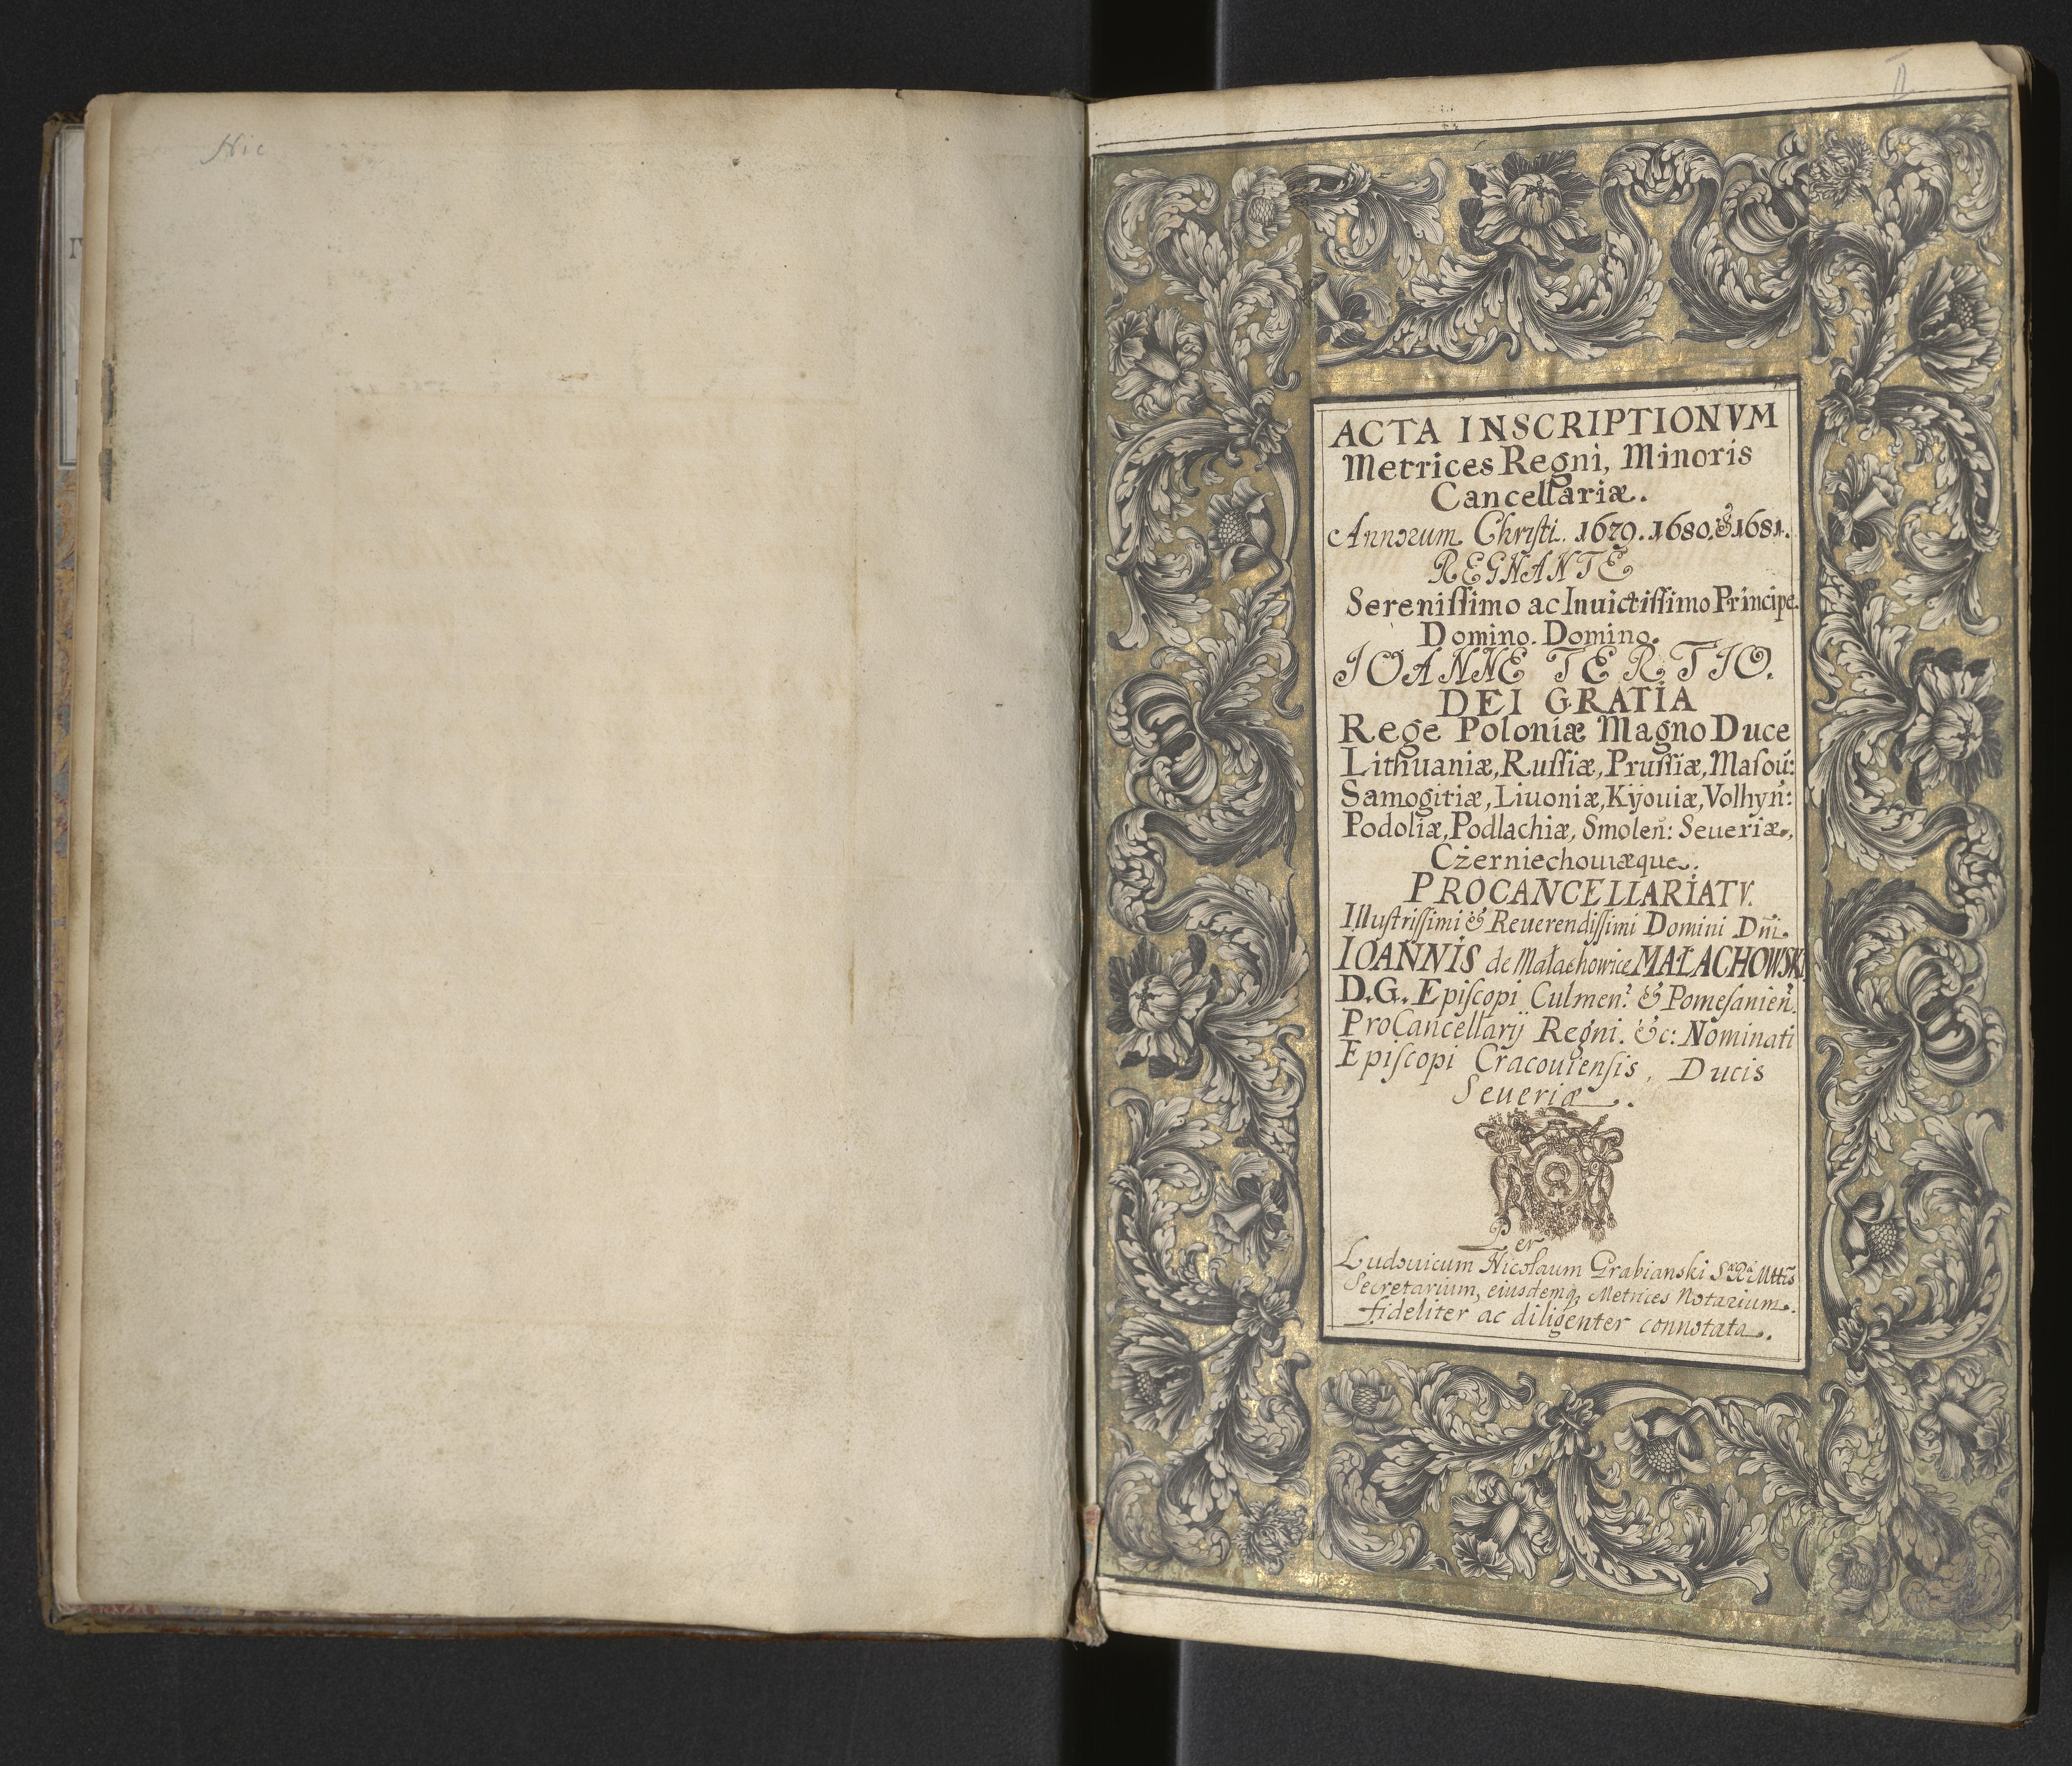 Nic
II
ACTA INSCRIPTIONVM
Metrices Regni, Minoris
Cancellariæ.
Annorum Christi. 1679. 1680. & 1681.
REGNANTE
Serenissimo ac Inuictissimo Principe.
Domino. Domino.
IOANNE TERTIO.
DEI GRATIA
Rege Poloniæ Magno Duce
Lithuaniæ, Russiæ, Prussiæ, Masou:
Samogitiæ, Liuoniæ, Kijouiæ, Volhyn:
Podoliæ, Podlachiæ, Smolen: Seueriæ,
Czerniechouiæque.
PROCANCELLARIATV.
Illustrissimi & Reuerendissimi Domini Dni.
IOANNIS de Małachowice MAŁACHOWSKI
D.G. Episcopi Culmen: & Pomesanien.
ProCancellarij Regni. &c: Nominati
Episcopi Cracouiensis, Ducis
Seueriæ.
Per
Ludouicum Nicolaum Grabianski S. R. Mttis
Secretarium, eiusdemq, Metrices Notarium.
fideliter ac diligenter connotata.